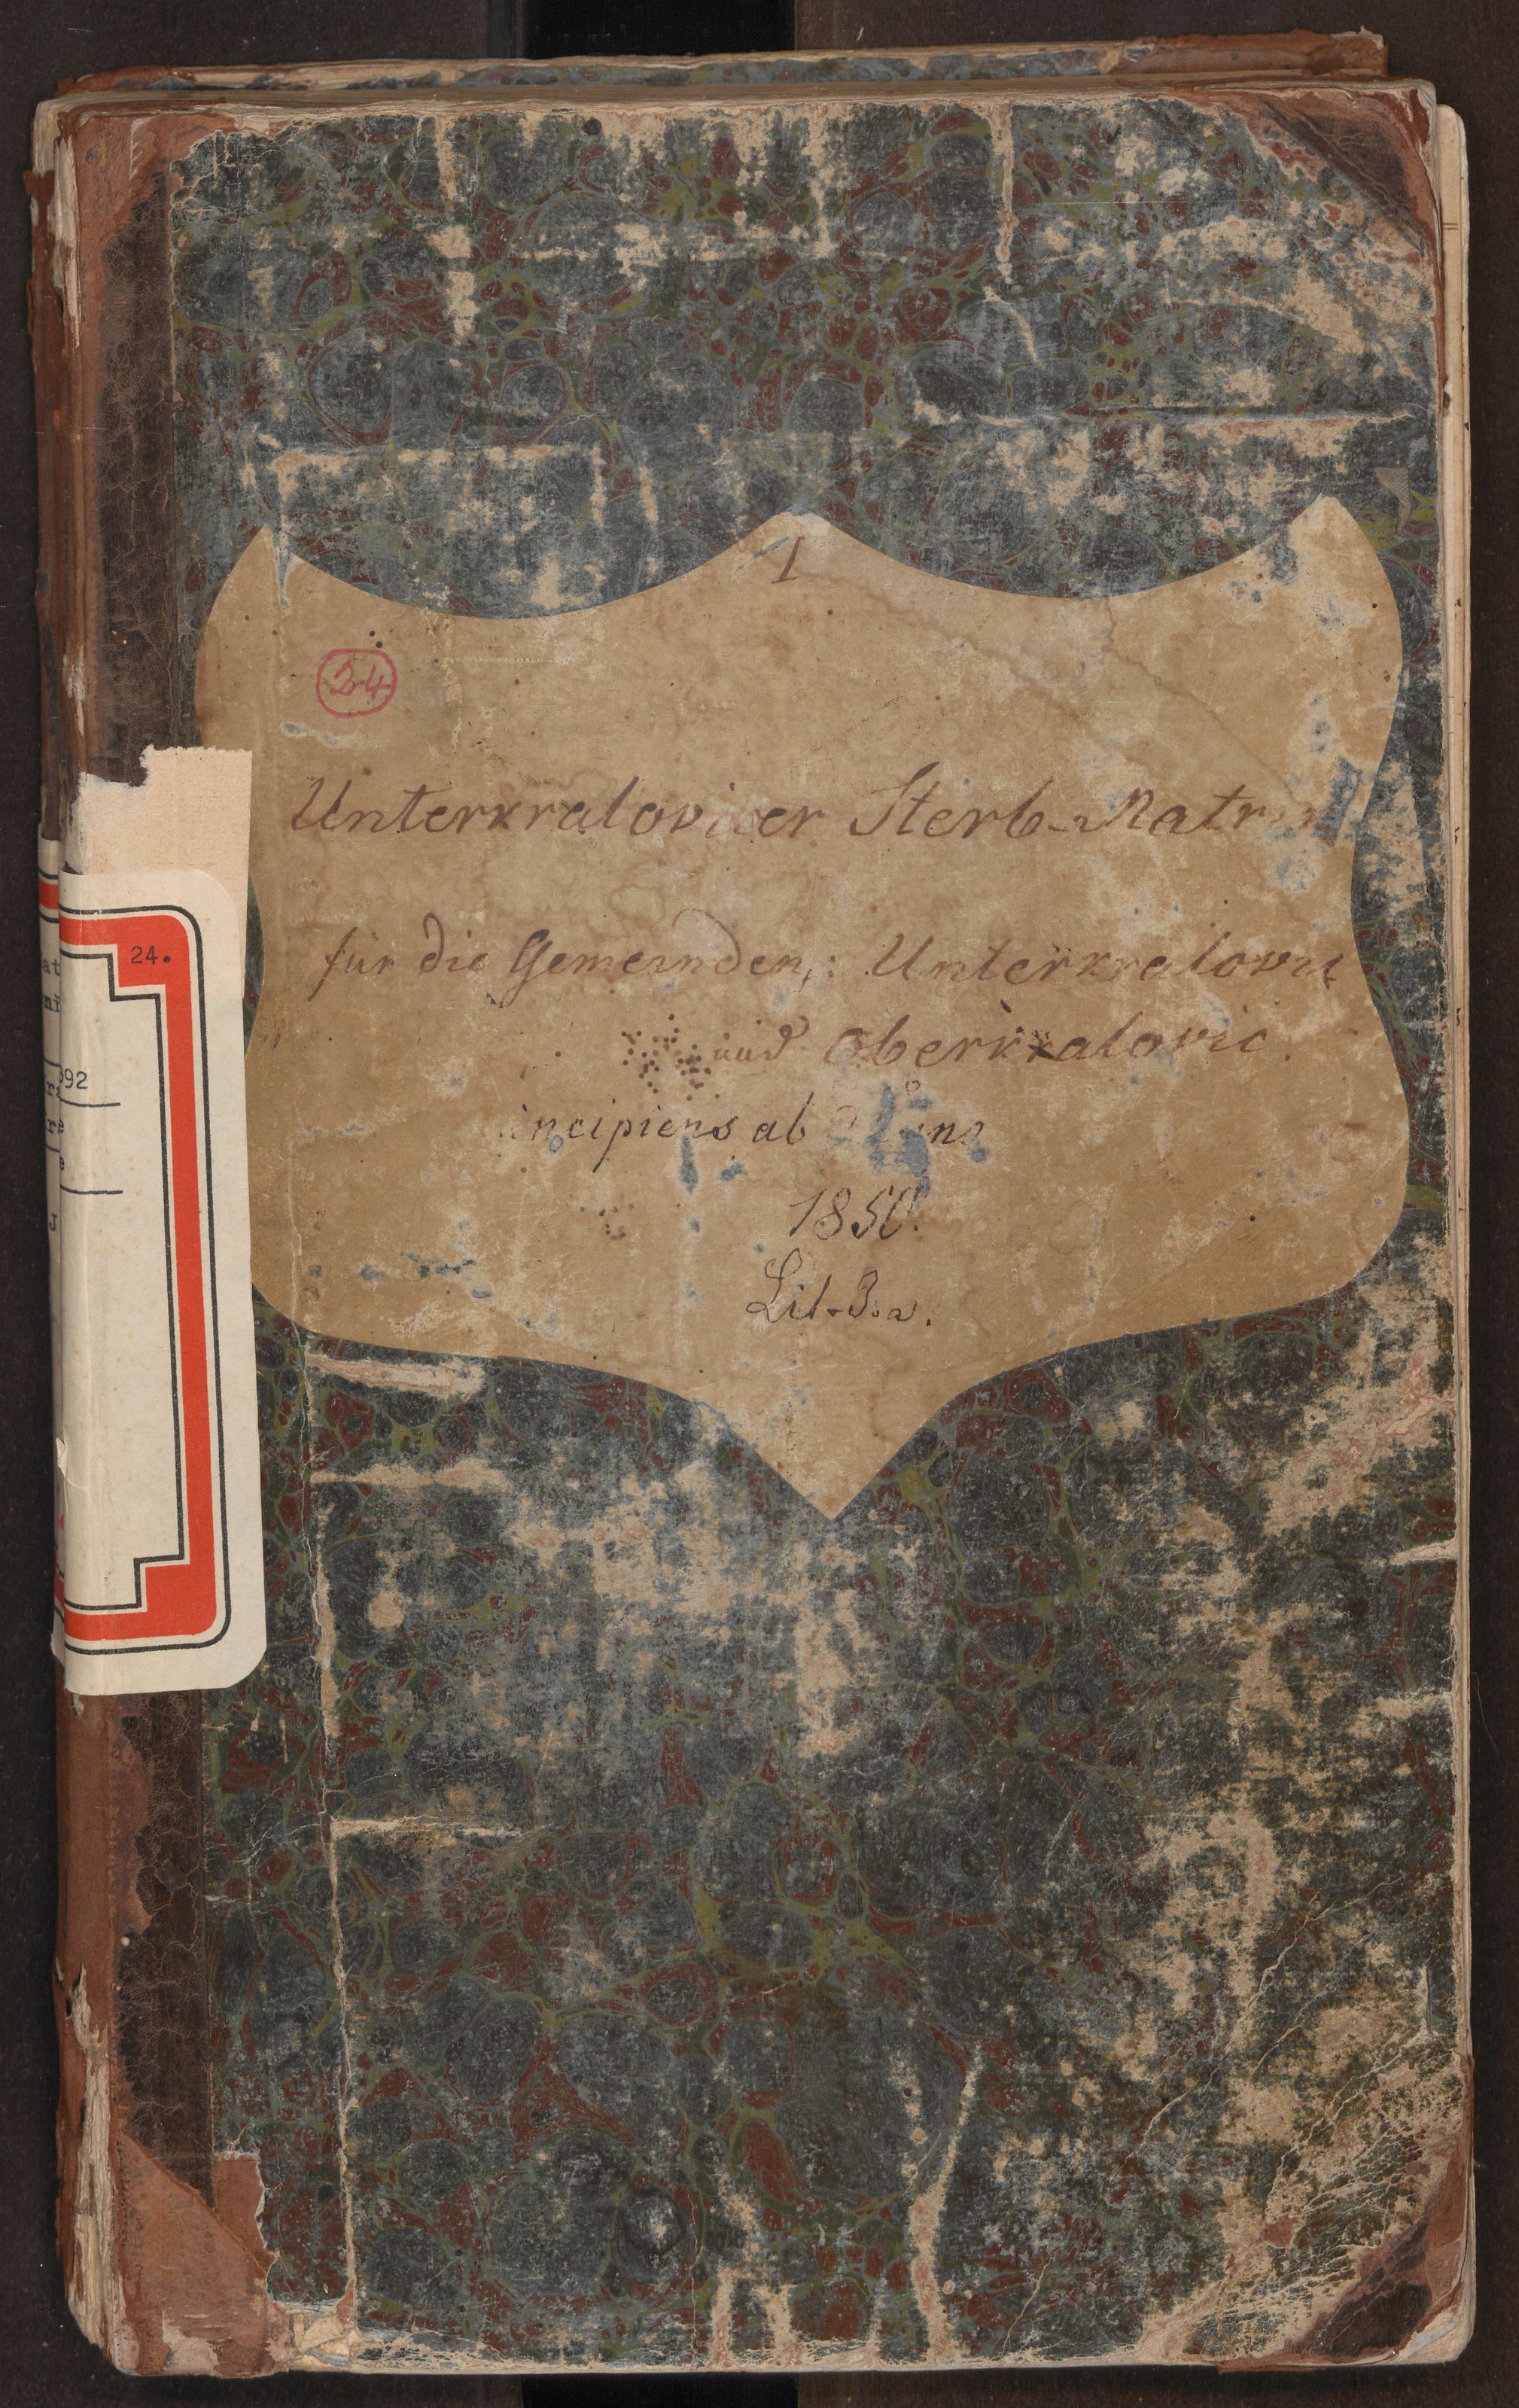 1
24
Unterkralovicer Sterb-Matrik
für die Gemeinden: Unterkralovic
und Oberkralovic.
incipiens ab
1850.
Lit. B. a.
24.
992